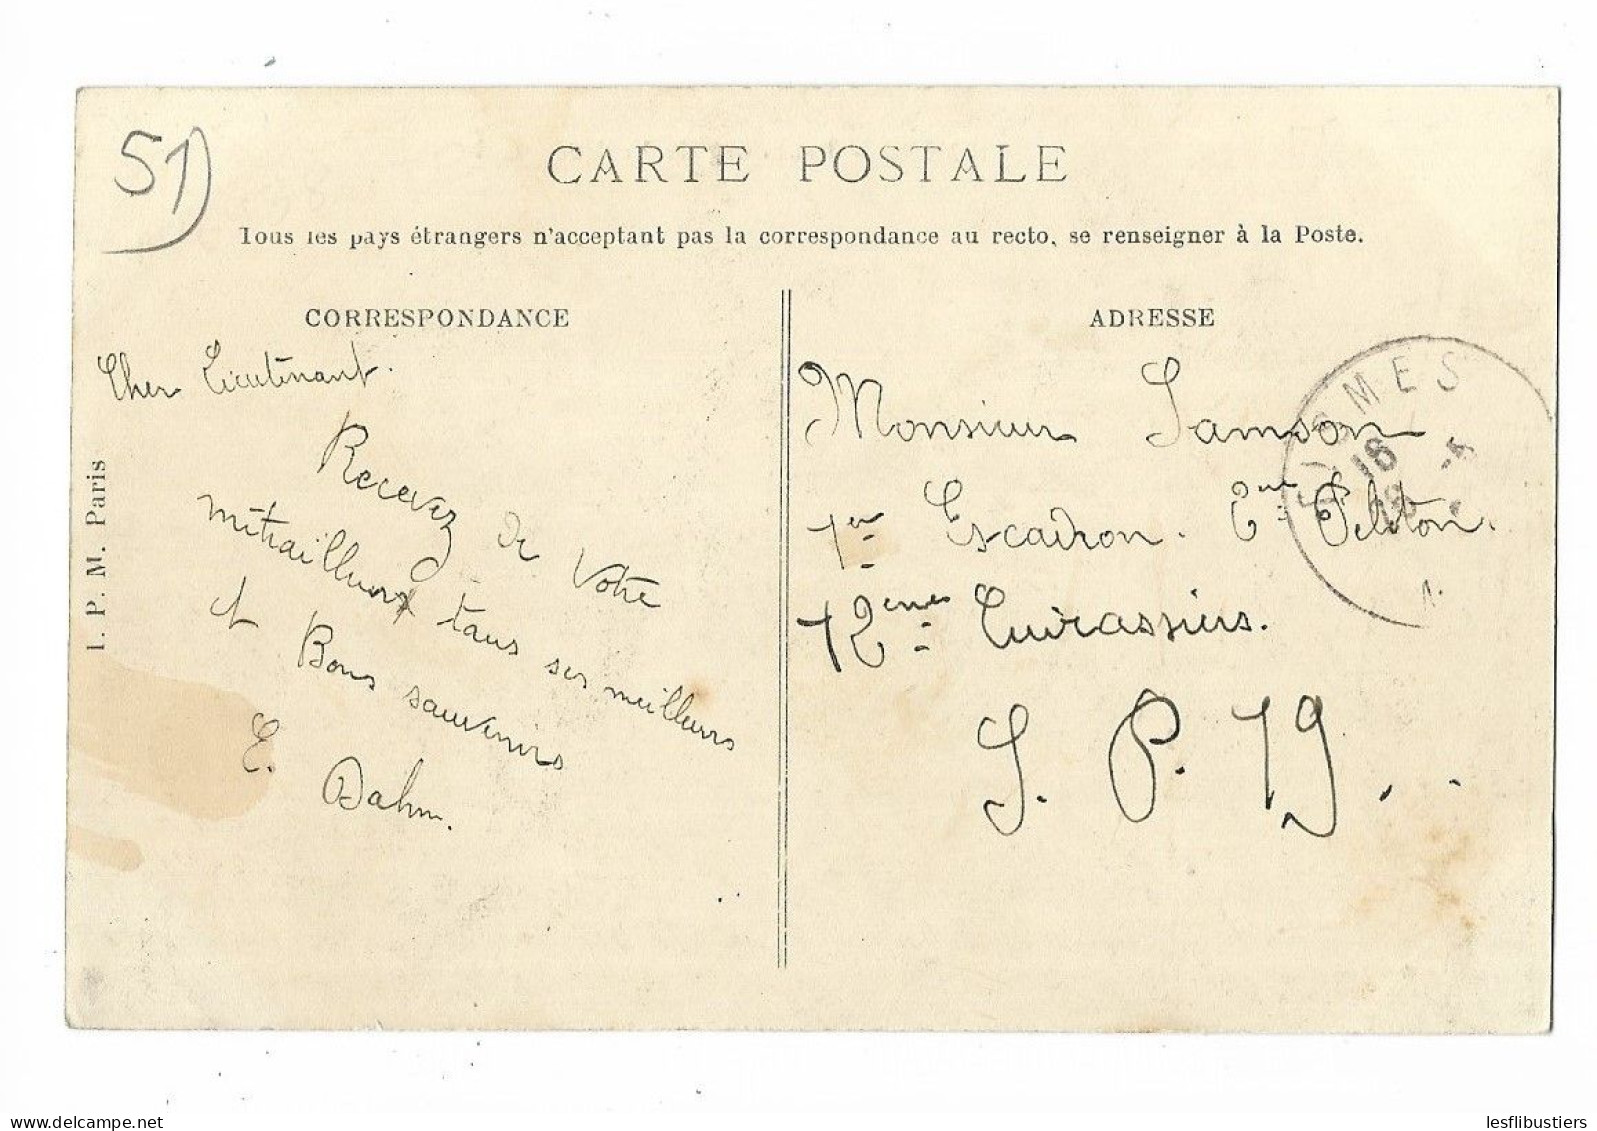 51
CARTE POSTALE
Tous les pays étrangers n'acceptant pas la correspondance au recto, se renseigner à la Poste.
CORRESPONDANCE
Cher Lieutenant.
Recevez de Votre
mitrailleur tous ses meilleurs
et Bons souvenirs
E. Dahm.
I. P. M. Paris
ADRESSE
Monsieur Samson
1er Escadron. 2me Peloton.
12eme Cuirassiers.
S. P. 79..
18
lesflibustiers